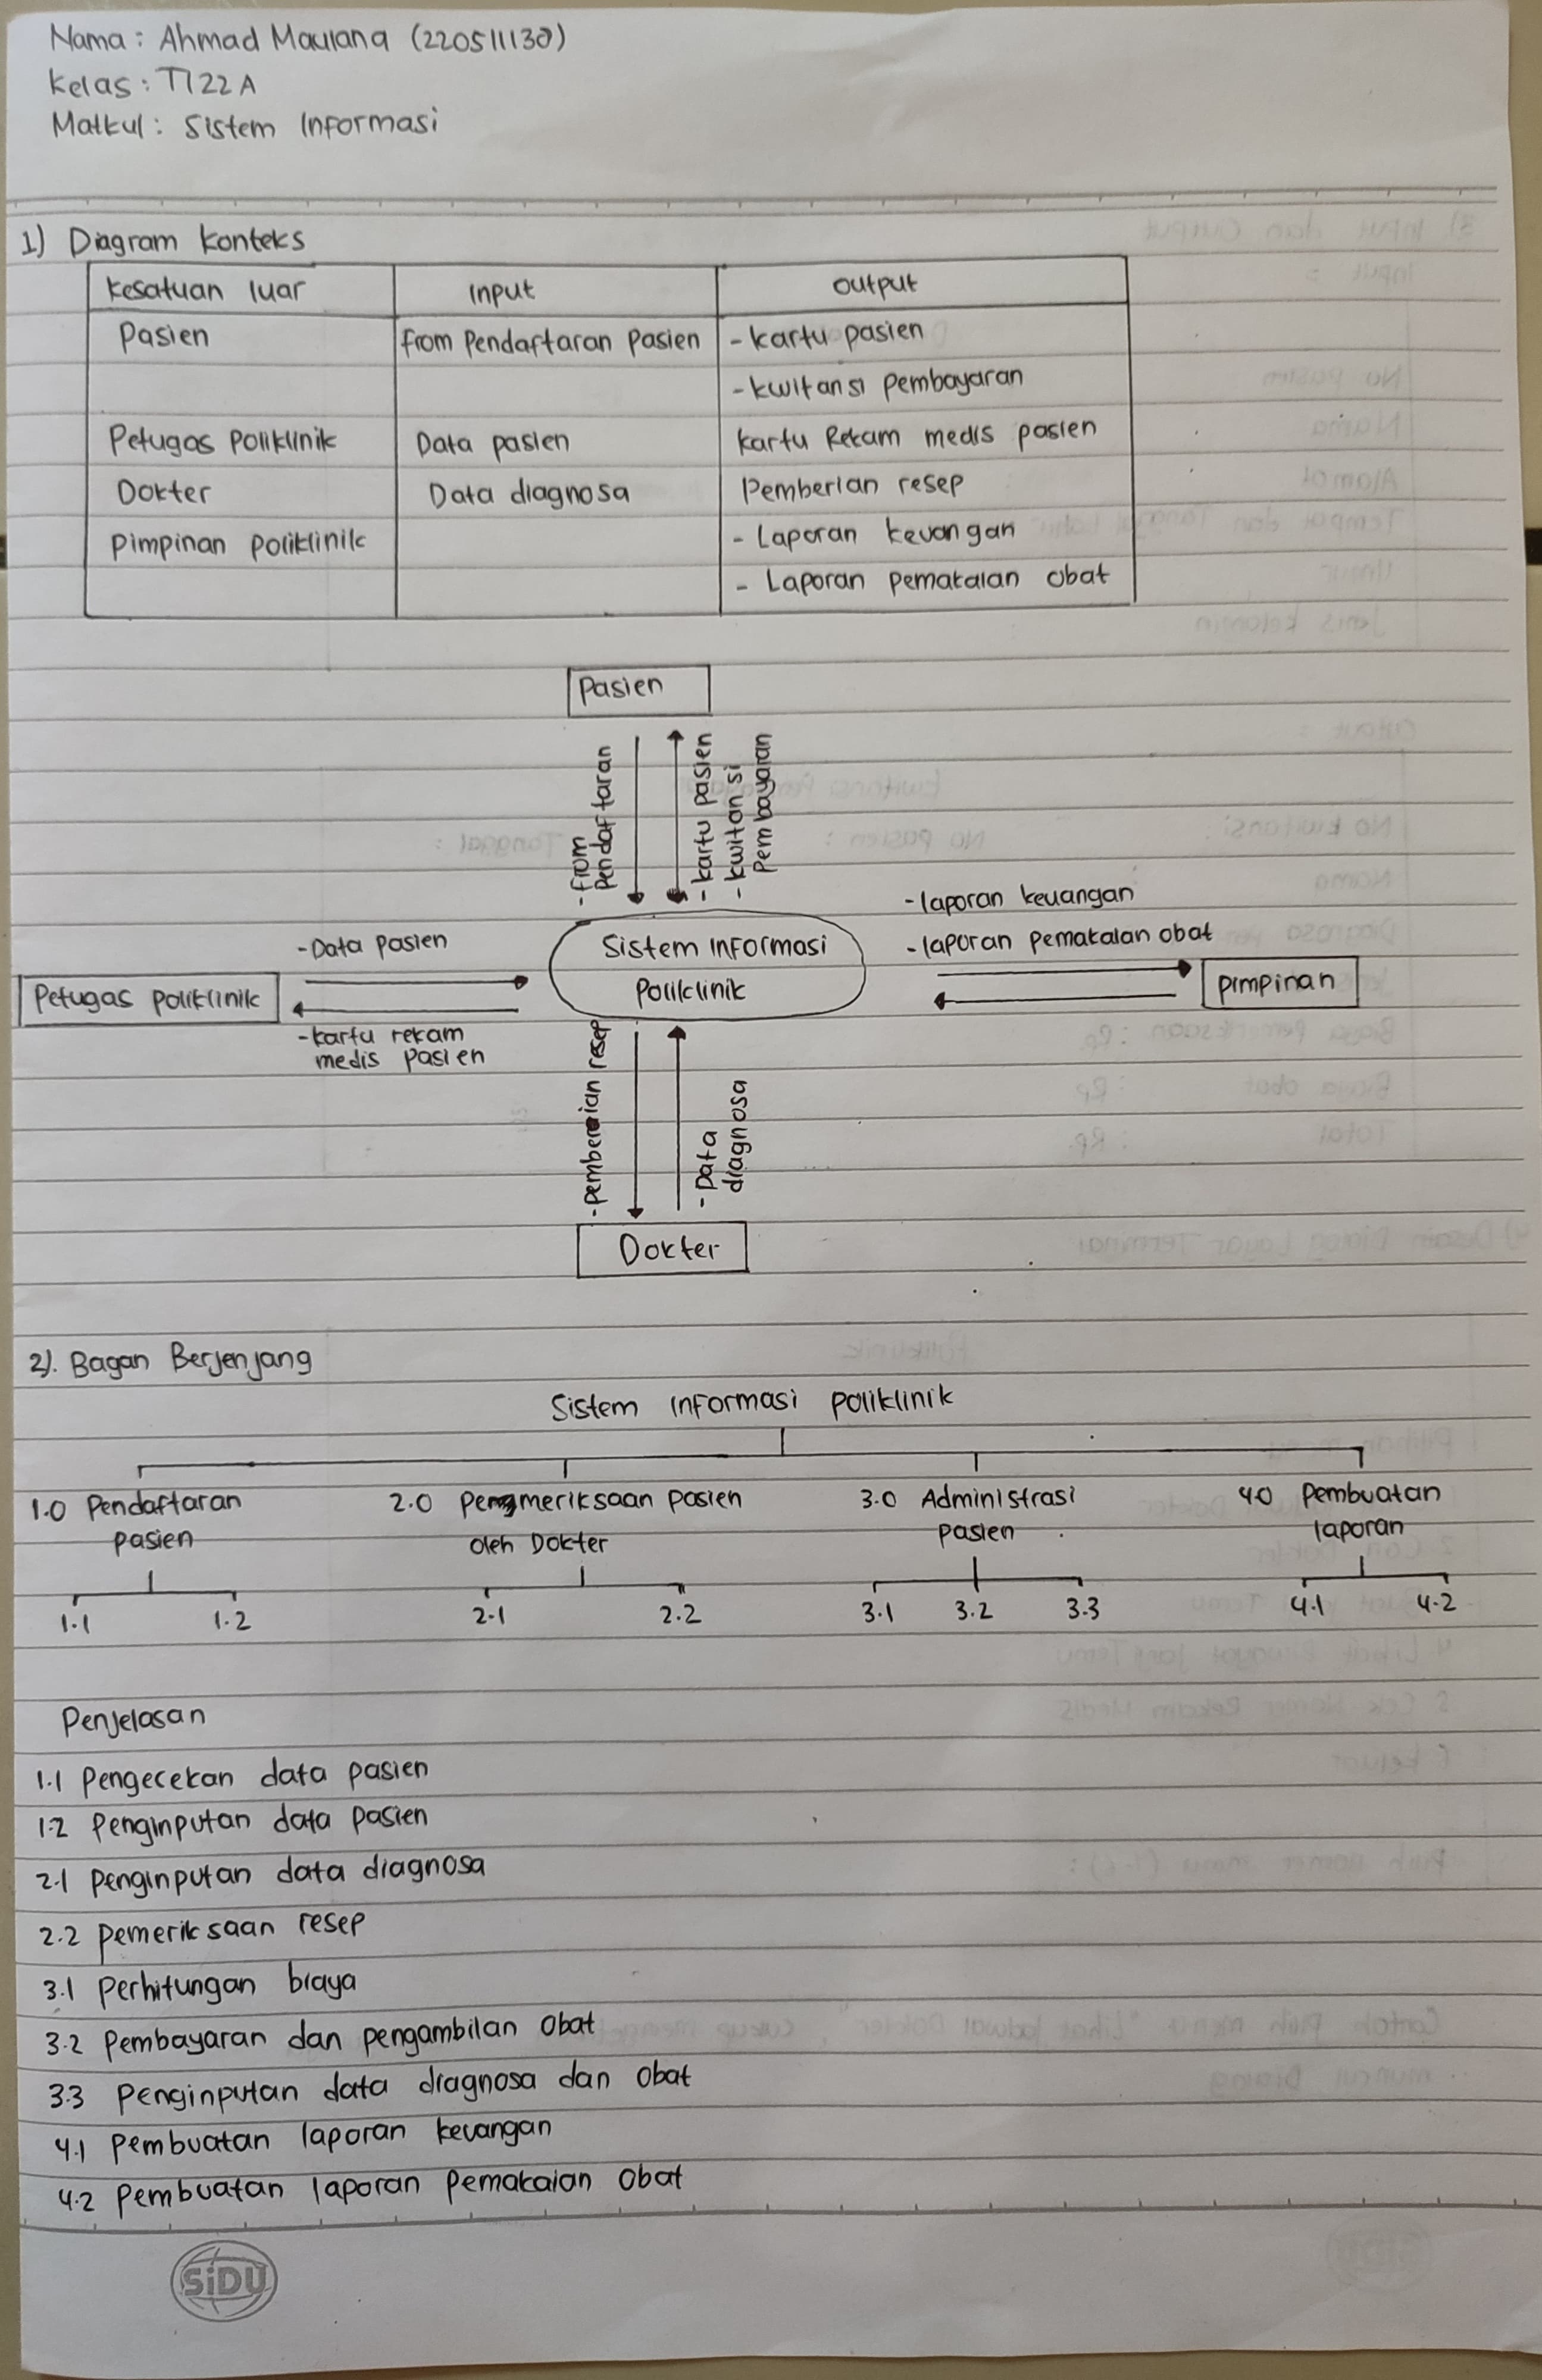 Nama : Ahmad Maulana (220511130)
Kelas : TI22A
Matkul : Sistem Informasi
1) Diagram Konteks
Kesatuan luar Input Output
Pasien from Pendaftaran Pasien - kartu pasien
- kwitansi pembayaran
Petugas Poliklinik Data pasien kartu Rekam medis pasien
Dokter Data diagnosa Pemberian resep
Pimpinan poliklinik - Laporan keuangan
- Laporan pemakaian obat
Pasien
- from
Pendaftaran
- kartu pasien
- kwitansi
Pembayaran
- laporan keuangan
- laporan pemakaian obat
- Data pasien
Sistem Informasi
Poliklinik
Petugas poliklinik
Pimpinan
- kartu rekam
medis pasien
- pemberian resep
- Data
diagnosa
Dokter
2). Bagan Berjenjang
Sistem Informasi poliklinik
1.0 Pendaftaran
pasien
2.0 Pemeriksaan pasien
oleh Dokter
3.0 Administrasi
pasien
4.0 Pembuatan
laporan
1.1 1.2 2.1 2.2 3.1 3.2 3.3 4.1 4.2
Penjelasan
1.1 Pengecekan data pasien
1.2 Penginputan data pasien
2.1 Penginputan data diagnosa
2.2 Pemeriksaan resep
3.1 Perhitungan biaya
3.2 Pembayaran dan pengambilan obat
3.3 Penginputan data diagnosa dan obat
4.1 Pembuatan laporan keuangan
4.2 Pembuatan laporan pemakaian obat
SiDU